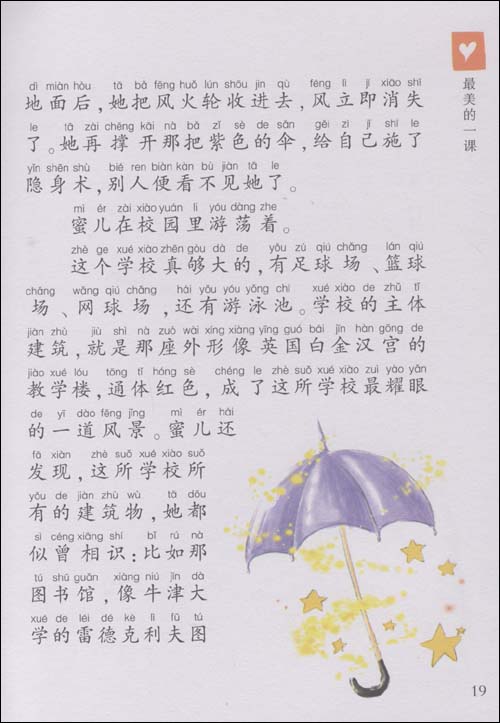 最美的一课
dì miàn hòu tā bǎ fēng huǒ lún shōu jìn qù fēng lì jí xiāo shī
地面后，她把风火轮收进去，风立即消失
le tā zài chēng kāi nà bǎ zǐ sè de sǎn gěi zì jǐ shī le
了。她再撑开那把紫色的伞，给自己施了
yǐn shēn shù bié ren biàn kàn bù jiàn tā le
隐身术，别人便看不见她了。
mì ér zài xiào yuán lǐ yóu dàng zhe
蜜儿在校园里游荡着。
zhè ge xué xiào zhēn gòu dà de yǒu zú qiú chǎng lán qiú
这个学校真够大的，有足球场、篮球
chǎng wǎng qiú chǎng hái yǒu yóu yǒng chí xué xiào de zhǔ tǐ
场、网球场，还有游泳池。学校的主体
jiàn zhù jiù shì nà zuò wài xíng xiàng yīng guó bái jīn hàn gōng de
建筑，就是那座外形像英国白金汉宫的
jiào xué lóu tōng tǐ hóng sè chéng le zhè suǒ xué xiào zuì yào yǎn
教学楼，通体红色，成了这所学校最耀眼
de yī dào fēng jǐng mì ér hái
的一道风景。蜜儿还
fā xiàn zhè suǒ xué xiào suǒ
发现，这所学校所
yǒu de jiàn zhù wù tā dōu
有的建筑物，她都
sì céng xiāng shí bǐ rú nà
似曾相识：比如那
tú shū guǎn xiàng niú jīn dà
图书馆，像牛津大
xué de léi dé kè lì fū tú
学的雷德克利夫图
19